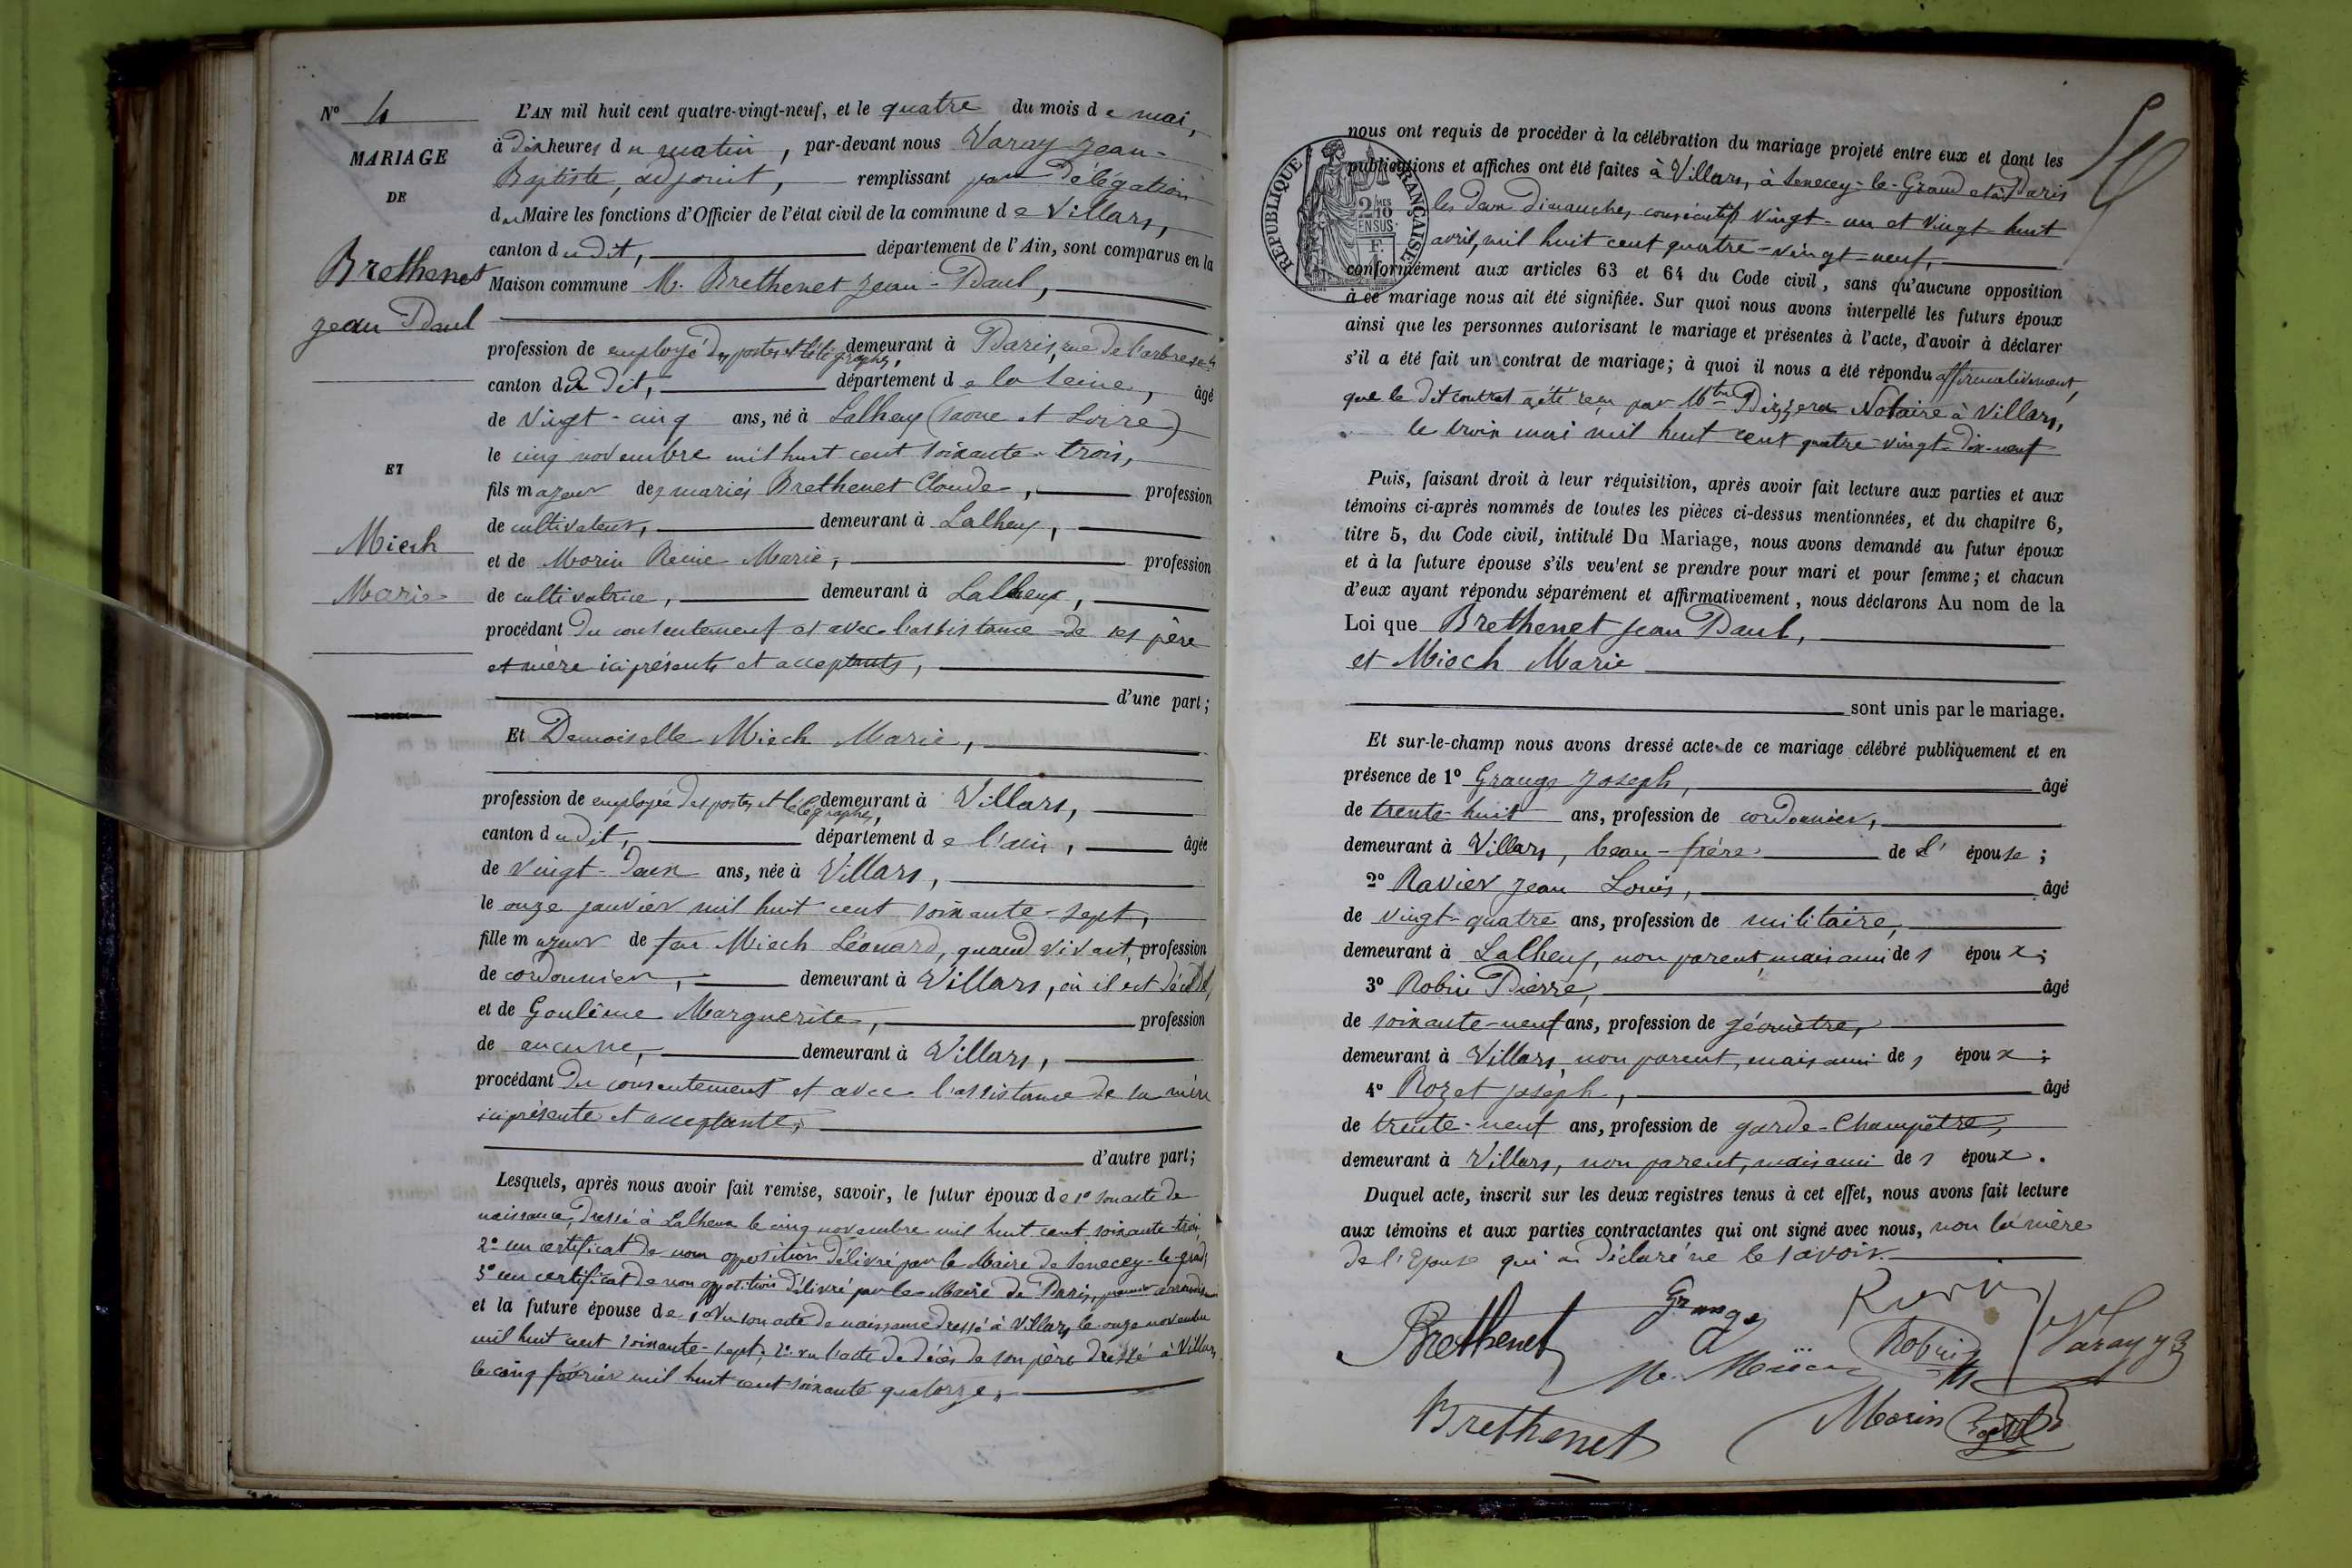 N° 4
MARIAGE
DE
Brethenet
Jean Paul
ET
Miech
Marie
L'AN mil huit cent quatre-vingt-neuf, et le quatre du mois de mai,
à dix heures du matin, par-devant nous Varay Jean-
Baptiste, adjoint, remplissant par délégation
du Maire les fonctions d'Officier de l'état civil de la commune de Villars,
canton dudit, département de l'Ain, sont comparus en la
Maison commune M. Brethenet Jean-Paul,
profession de employé des postes et télégraphes, demeurant à Paris, rue de l'arbre sec
canton du dit, département de la Seine, âgé
de vingt-cinq ans, né à Lalheue (Saône et Loire)
le cinq novembre mil huit cent soixante-trois,
fils majeur des mariés Brethenet Claude, profession
de cultivateur, demeurant à Lalheue,
et de Morin Reine Marie, profession
de cultivatrice, demeurant à Lalheue,
procédant du consentement et avec l'assistance de ses père
et mère ici présents et acceptants,
d'une part;
Et Demoiselle Miech Marie,
profession de employée des postes et télégraphes, demeurant à Villars,
canton dudit, département de l'ain, âgée
de vingt-deux ans, née à Villars,
le onze janvier mil huit cent soixante-sept,
fille majeur de feu Miech Léonard, quand vivait, profession
de cordonnier, demeurant à Villars, où il est décédé,
et de Goulême Marguerite, profession
de aucune, demeurant à Villars,
procédant du consentement et avec l'assistance de sa mère
ici présente et acceptante,
d'autre part;
Lesquels, après nous avoir fait remise, savoir, le futur époux de 1° son acte de
naissance, dressé à Lalheue le cinq novembre mil huit cent soixante-trois
2° un certificat de non opposition délivré par le Maire de Senecey-le-grand,
3° un certificat de non opposition délivré par le Maire de Paris, premier arrondissement
et la future épouse de 1° vu son acte de naissance dressé à Villars le onze novembre
mil huit cent soixante-sept, 2° vu l'acte de décès de son père dressé à Villars
le cinq février mil huit cent soixante quatorze,
nous ont requis de procéder à la célébration du mariage projeté entre eux et dont les
publications et affiches ont été faites à Villars, à Senecey-le-Grand et à Paris
les deux dimanches consécutifs vingt-un et vingt-huit
avril, mil huit cent quatre-vingt-neuf,
conformément aux articles 63 et 64 du Code civil, sans qu'aucune opposition
à ce mariage nous ait été signifiée. Sur quoi nous avons interpellé les futurs époux
ainsi que les personnes autorisant le mariage et présentes à l'acte, d'avoir à déclarer
s'il a été fait un contrat de mariage; à quoi il nous a été répondu affirmativement,
que le dit contrat a été reçu par Mtre Pizzera Notaire à Villars,
le trois mai mil huit cent quatre-vingt-dix-neuf
RÉPUBLIQUE FRANÇAISE
2 MES 10
EN SUS
Puis, faisant droit à leur réquisition, après avoir fait lecture aux parties et aux
témoins ci-après nommés de toutes les pièces ci-dessus mentionnées, et du chapitre 6,
titre 5, du Code civil, intitulé Du Mariage, nous avons demandé au futur époux
et à la future épouse s'ils veu'ent se prendre pour mari et pour femme; et chacun
d'eux ayant répondu séparément et affirmativement, nous déclarons Au nom de la
Loi que Brethenet Jean Paul,
et Miech Marie
sont unis par le mariage.
Et sur-le-champ nous avons dressé acte de ce mariage célébré publiquement et en
présence de 1° Grange Joseph, âgé
de trente-huit ans, profession de cordonnier,
demeurant à Villars, beau-frère de l'épouse;
2° Ravier Jean Louis, âgé
de vingt-quatre ans, profession de militaire,
demeurant à Lalheue, non parent, mais ami des époux;
3° Robin Pierre, âgé
de soixante-neuf ans, profession de géomètre,
demeurant à Villars, non parent, mais ami des époux;
4° Rozet Joseph, âgé
de trente-neuf ans, profession de garde-Champêtre,
demeurant à Villars, non parent, mais ami des époux.
Duquel acte, inscrit sur les deux registres tenus à cet effet, nous avons fait lecture
aux témoins et aux parties contractantes qui ont signé avec nous, non la mère
de l'Epouse qui a déclaré ne le savoir.
Brethenet
Grange
Robin
Varay
Brethenet
Morin